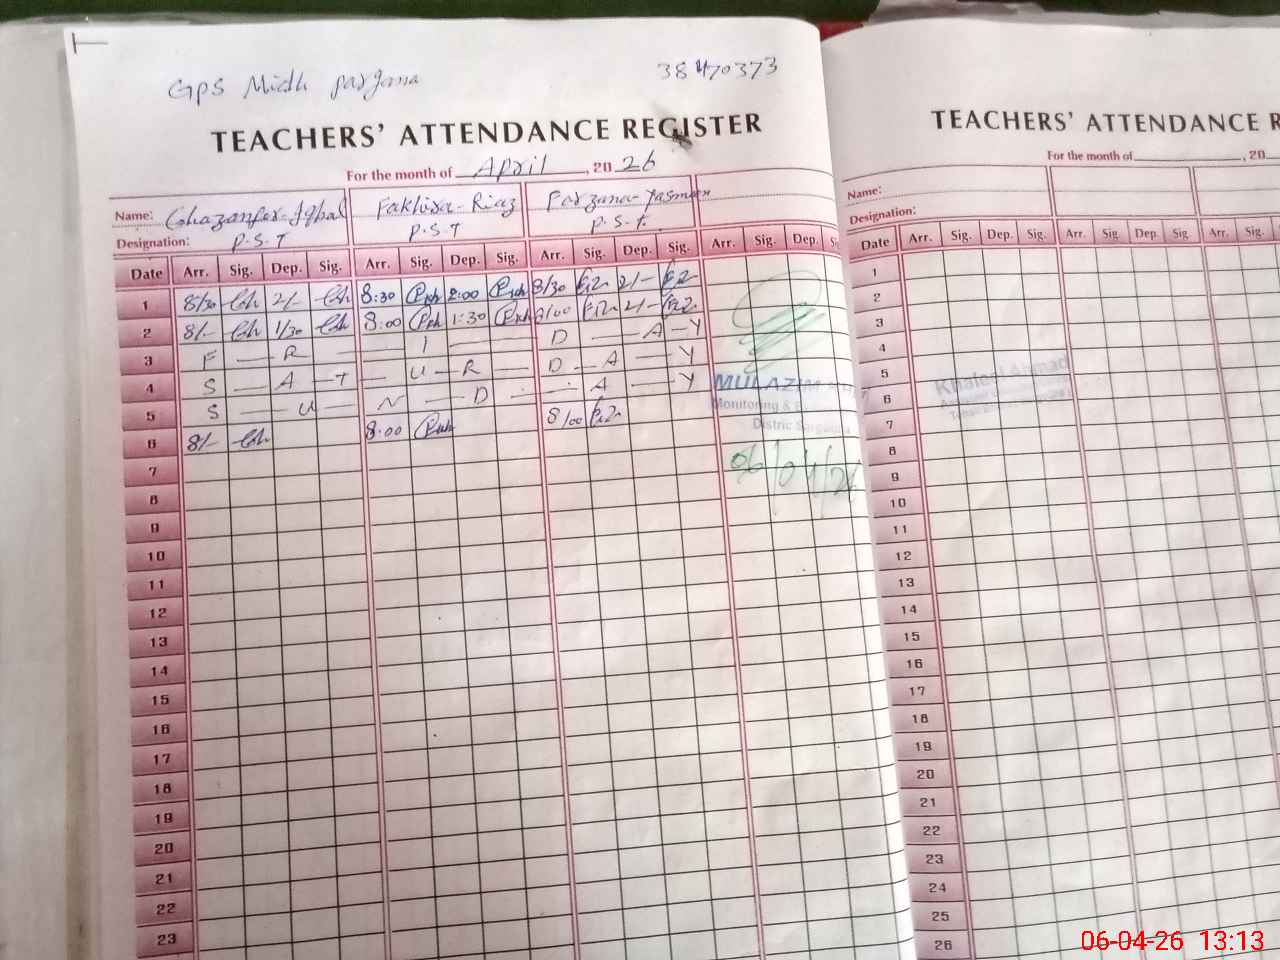 GPS Midh parjana 38470373
TEACHERS' ATTENDANCE REGISTER
For the month of April, 2026
Name: Ghazanfer-Iqbal Fakhira-Riaz Farzana-Yasmeen
Designation: P.S.T P.S.T P.S.T.
Date Arr. Sig. Dep. Sig. Arr. Sig. Dep. Sig. Arr. Sig. Dep. Sig. Arr. Sig. Dep. Si
1 8/30 Gh 2/- Gh 8:30 2:00 8/30 2/-
2 8/- Gh 1/30 Gh 8:00 1:30 8/00 2/-
3 F — R — I — D — A — Y
4 S — A — T — U — R — D — A — Y
5 S — U — N — D — A — Y
6 8/- Gh 8:00 8/00
7
8
9
10
11
12
13
14
15
16
17
18
19
20
21
22
23
MULAZIM
Monitoring &
Distric Sargodha
06/04/26
TEACHERS' ATTENDANCE R
For the month of , 20
Name:
Designation:
Date Arr. Sig. Dep. Sig. Arr. Sig. Dep. Sig. Arr. Sig.
1
2
3
4
5
6
7
8
9
10
11
12
13
14
15
16
17
18
19
20
21
22
23
24
25
26
Khaleel Ahmad
06-04-26 13:13